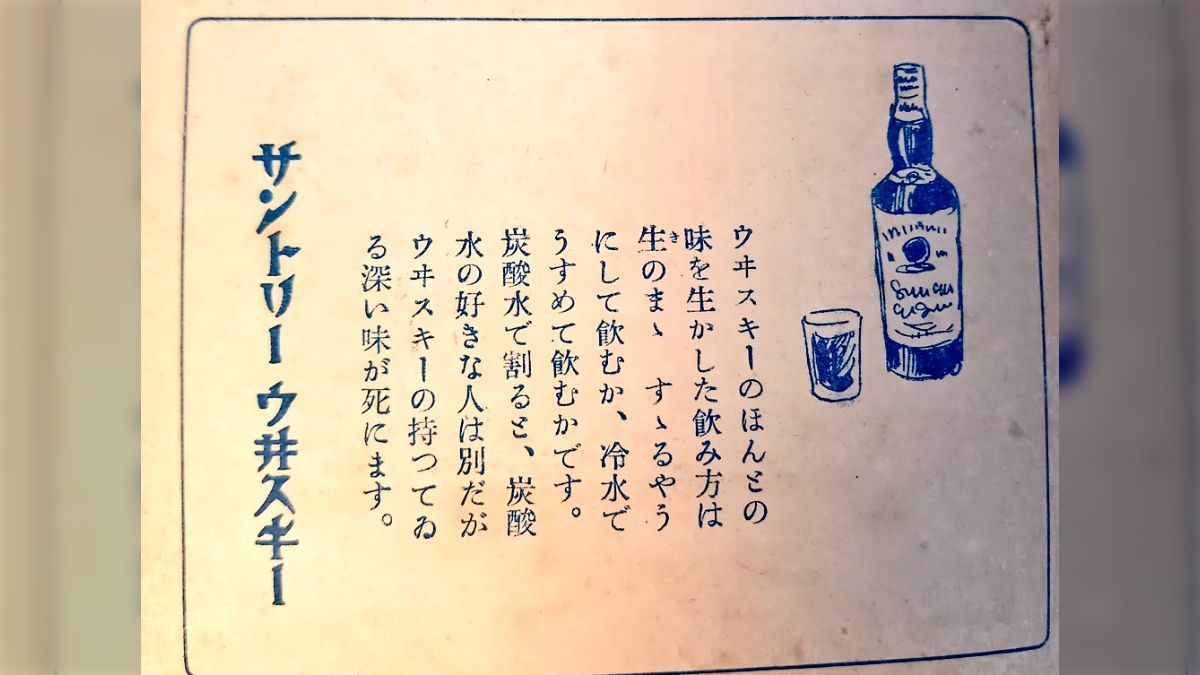 ウヰスキーのほんとの
味を生かした飲み方は
生のまゝ すゝるやう
き
にして飲むか、冷水で
うすめて飲むかです。
炭酸水で割ると、炭酸
水の好きな人は別だが
ウヰスキーの持つてゐ
る深い味が死にます。
サントリー ウ井スキー